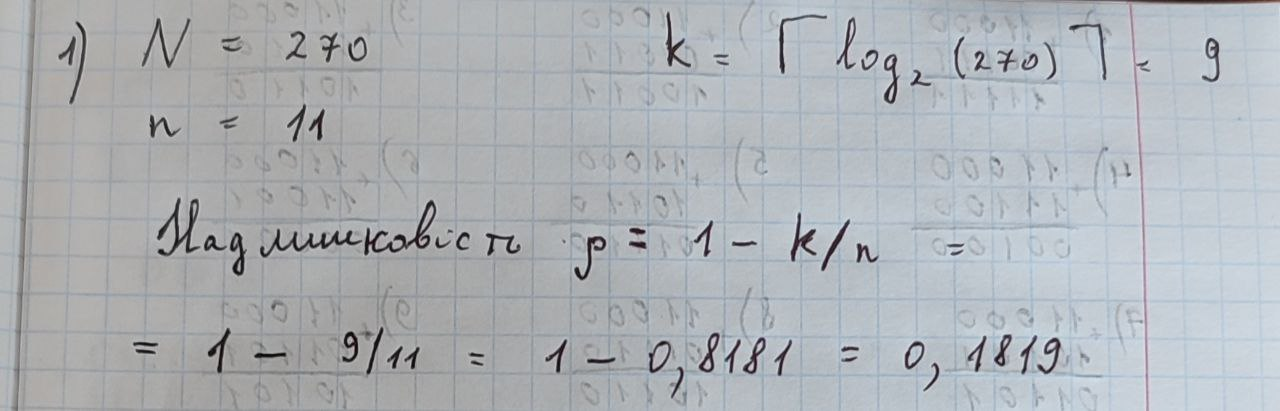 1) N = 270 k = ⌈ log₂ (270) ⌉ = 9
n = 11
Надлишковість ρ = 1 - k/n =
= 1 - 9/11 = 1 - 0,8181 = 0,1819